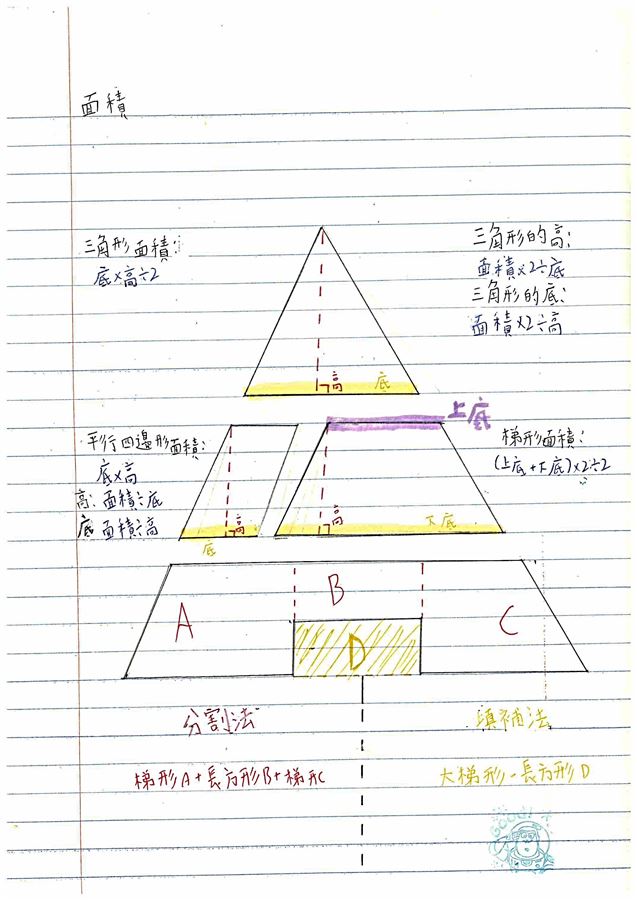 面積
三角形面積:
底×高÷2
三角形的高:
面積×2÷底
三角形的底:
面積×2÷高
高
底
上底
平行四邊形面積:
底×高
高: 面積÷底
底 面積÷高
梯形面積:
(上底+下底)×2÷2
高
底
高
下底
A
B
C
D
分割法
填補法
梯形A+長方形B+梯形C
大梯形-長方形D
GOOD!